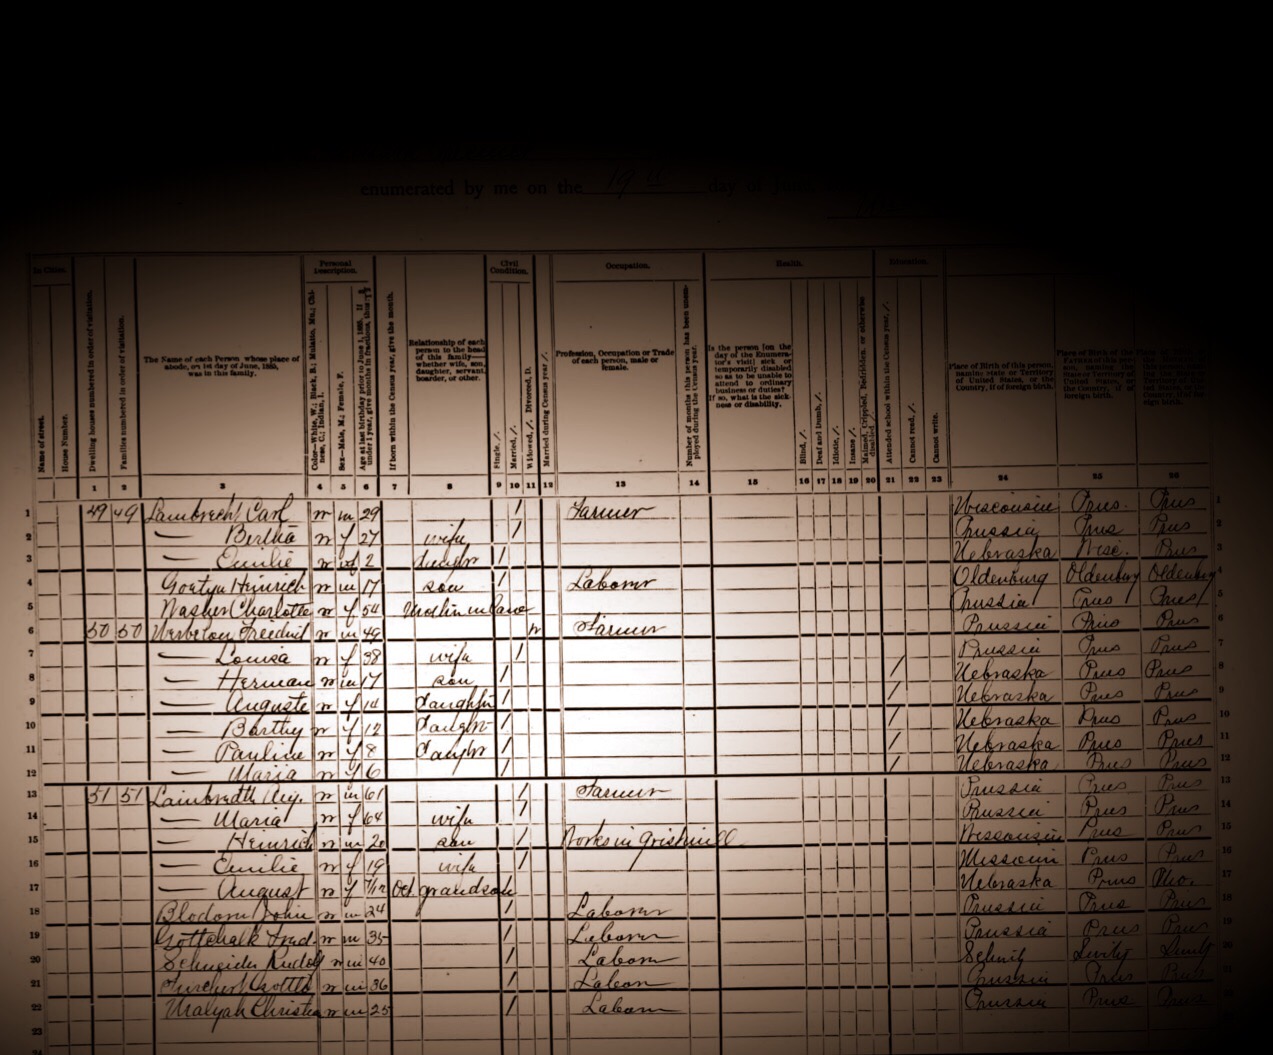 enumerated by me on the 19th day of June
In Cities.
Name of street.
House Number.
Dwelling houses numbered in order of visitation.
Families numbered in order of visitation.
The Name of each Person whose place of abode, on 1st day of June, 1885, was in this family.
Personal Description.
Color—White, W.; Black, B.; Mulatto, Mu.; Chinese, C.; Indian, I.
Sex—Male, M.; Female, F.
Age at last birthday prior to June 1, 1885. If under 1 year, give months in fractions, thus
If born within the Census year, give the month.
Relationship of each person to the head of this family—whether wife, son, daughter, servant, boarder, or other.
Civil Condition.
Single, /.
Married, /.
Widowed, /. Divorced, D.
Married during Census year /.
Occupation.
Profession, Occupation or Trade of each person, male or female.
Number of months this person has been unemployed during the Census year.
Health.
Is the person [on the day of the Enumerator's visit] sick or temporarily disabled so as to be unable to attend to ordinary business or duties? If so, what is the sickness or disability.
Blind, /.
Deaf and Dumb, /.
Idiotic, /.
Insane, /.
Maimed, Crippled, Bedridden, or otherwise disabled /.
Education.
Attended school within the Census year, /.
Cannot read, /.
Cannot write.
Place of Birth of this person, naming State or Territory of United States, or the Country, if of foreign birth.
1 2 3 4 5 6 7 8 9 10 11 12 13 14 15 16 17 18 19 20 21 22 23 24 25 26
1 49 49 Lambrecht Carl w m 29 / Farmer Wisconsin Prus. Prus 1
2 — Bertha w f 27 wife / Prussia Prus Prus 2
3 — Emilie w f 2 daughr / Nebraska Wisc. Prus 3
4 Heinrich w m 17 son / Laborer Oldenburg Oldenburg Oldenburg 4
5 Charlotte w f 54 Mother in lawe Prussia Prus Prus 5
6 50 50 Friedrich w m 49 w Farmer Prussia Prus Prus 6
7 — Louisa w f 38 wife / Prussia Prus Prus 7
8 — Herman w m 17 son / / Nebraska Prus Prus 8
9 — Auguste w f 14 Daughtr / / Nebraska Prus Prus 9
10 — Barthy w f 12 Daughr / / Nebraska Prus Prus 10
11 — Pauline w f 8 Daughr / / Nebraska Prus Prus 11
12 — Maria w f 6 / / Nebraska Prus Prus 12
13 51 51 Lambredth Aug. w m 61 / Farmer Prussia Prus Prus 13
14 — Maria w f 64 wife / Prussia Prus Prus 14
15 — Heinrich w m 20 son / Works in Gristmill Wisconsin Prus Prus 15
16 — Emilie w f 19 wife / Missouri Prus Prus 16
17 — August w f 7/12 Oct grandson / Nebraska Prus Mo. 17
18 Blodorn John w m 24 / Laborer Prussia Prus Prus 18
19 Gottchalk Fred. w m 35 / Laborer Prussia Prus Prus 19
20 Schneider Rudolf w m 40 / Laborn 20
21 w m 36 / Labon Prussia Prus Prus 21
22 Christian w m 25 / Laborn Prussia Prus Prus 22
23